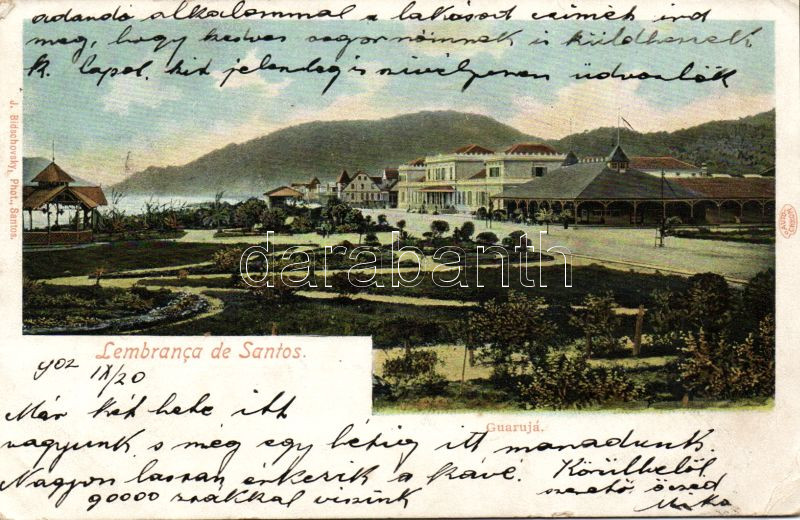 adandó alkalommal a lakásod címét ird
meg, hogy kedves sogornőmnek is küldhessek
k. lapot. kit jelenleg is szivélyesen üdvözlök
J. Bidschovsky, Phot. Santos.
darabanth
Lembrança de Santos.
Guarujá.
902 IX/20
Már két hete itt
vagyunk s még egy hétig itt maradunk.
Nagyon lassan érkezik a kávé. Körülbelől
90000 zsákkal viszünk
szerető öcséd
Miska